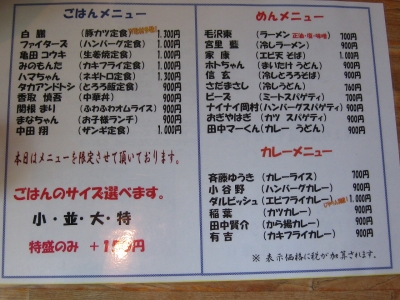 ごはんメニュー
白鵬 (豚カツ定食) 1.300円
ファイターズ (ハンバーグ定食) 1.000円
亀田 コウキ (生姜焼定食) 1.000円
みのもんた (カキフライ定食) 1.000円
ハマちゃん (ネギトロ定食) 1.300円
タカアンドトシ (とろろ飯定食) 900円
香取 慎吾 (中華丼) 900円
関根 まり (ふわふわオムライス) 900円
まなちゃん (お子様ランチ) 900円
中田 翔 (ザンギ定食) 1.000円
本日はメニューを限定させて頂いております。
ごはんのサイズ選べます。
小・並・大・特
特盛のみ +1 円
めんメニュー
毛沢東 (ラーメン 正油・塩・味噌) 700円
宮里 藍 (冷しラーメン) 900円
家康 (エビ天 そば) 1.000円
ホトちゃん (まいたけ うどん) 900円
信玄 (冷しとろろそば) 900円
さだまさし (冷しうどん) 760円
ビーズ (ミートスパゲティ) 700円
ナイナイ岡村 (ハンバーグスパゲティ) 900円
おぎやはぎ (カツ スパゲティ) 900円
田中マーくん (カレー うどん) 900円
カレーメニュー
斉藤ゆうき (カレーライス) 700円
小谷野 (ハンバーグカレー) 900円
ダルビッシュ (エビフライカレー) 1.000円
稲葉 (カツカレー) 900円
田中賢介 (から揚カレー) 900円
有吉 (カキフライカレー) 900円
※ 表示価格に税が加算されます。